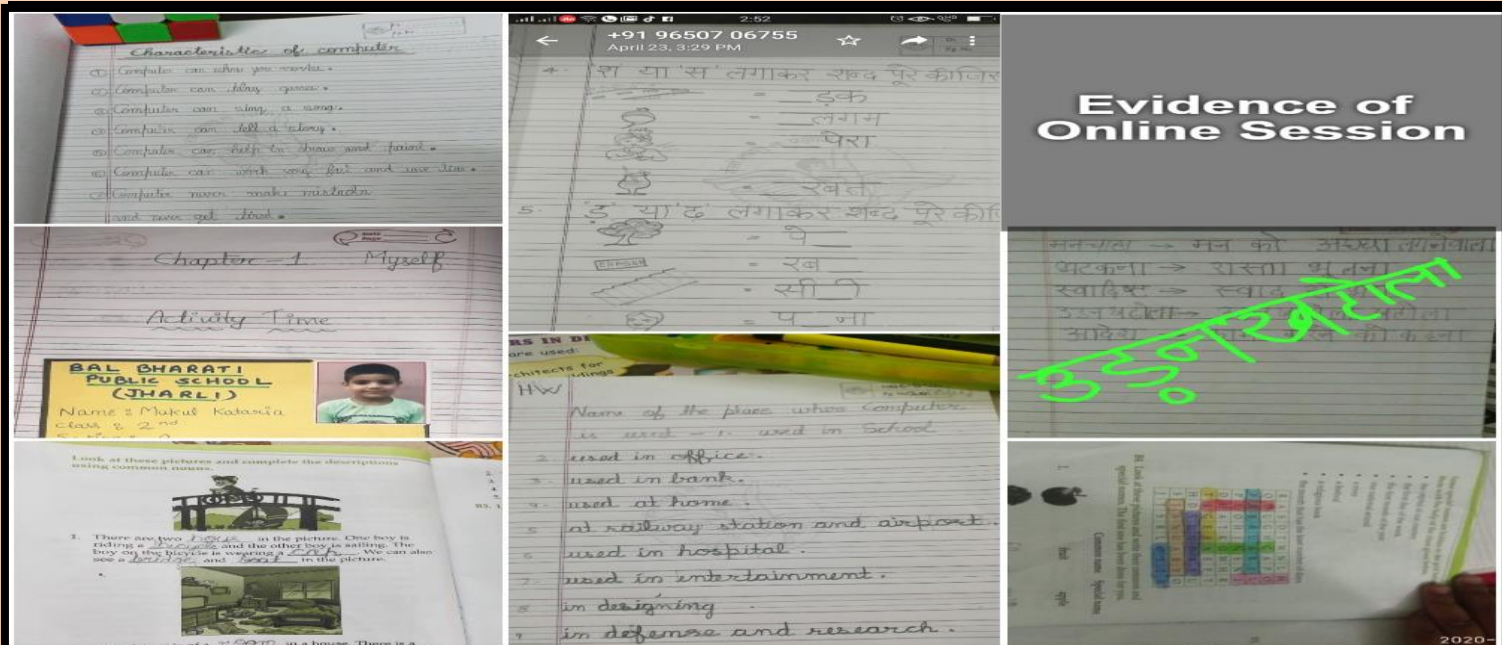 Characteristics of computer
① Computer can show you movie.
② Computer can play games.
③ Computer can sing a song.
④ Computer can tell a story.
⑤ Computer can help to draw and paint.
⑥ Computer can work very fast and save time.
⑦ Computer never make mistake
and never get tired.
Chapter-1 Myself
Activity Time
BAL BHARATI
PUBLIC SCHOOL
(JHARLI)
Name : Mukul Kataria
Class : 2nd
Look at these pictures and complete the descriptions
using common nouns.
1. There are two boys in the picture. One boy is
riding a bicycle and the other boy is sailing. The
boy on the bicycle is wearing a cap. We can also
see a bridge and boat in the picture.
room in a house. There is a
2:52
+91 96507 06755
April 23, 3:29 PM
4. 'श' या 'स' लगाकर शब्द पूरे कीजिए
= __ड़क
= __लगम
= __पेरा
= __रबत
5. 'ड़' या 'ढ़' लगाकर शब्द पूरे कीजि
= पे__
ERASER
= रब__
= सी__ी
= प__ना
RS IN DI
are used:
chitects for
ldings
HW
Name of the place where Computer
is used - 1. used in School
2. used in office.
3. used in bank.
4. used at home.
5 at railway station and airport.
6 used in hospital.
7 used in entertainment.
8 in designing
9 in defense and research.
Evidence of
Online Session
मनचाहा → मन को अच्छा लगनेवाला
भटकना → रास्ता भूलना
स्वादिष्ट → स्वाद
उड़नखटोला →
आदेश
उड़नखटोला
B1. Look at these pictures and write their common and
special names. The first one has been done for you.
Common name Special name
1. fruit apple
2020-